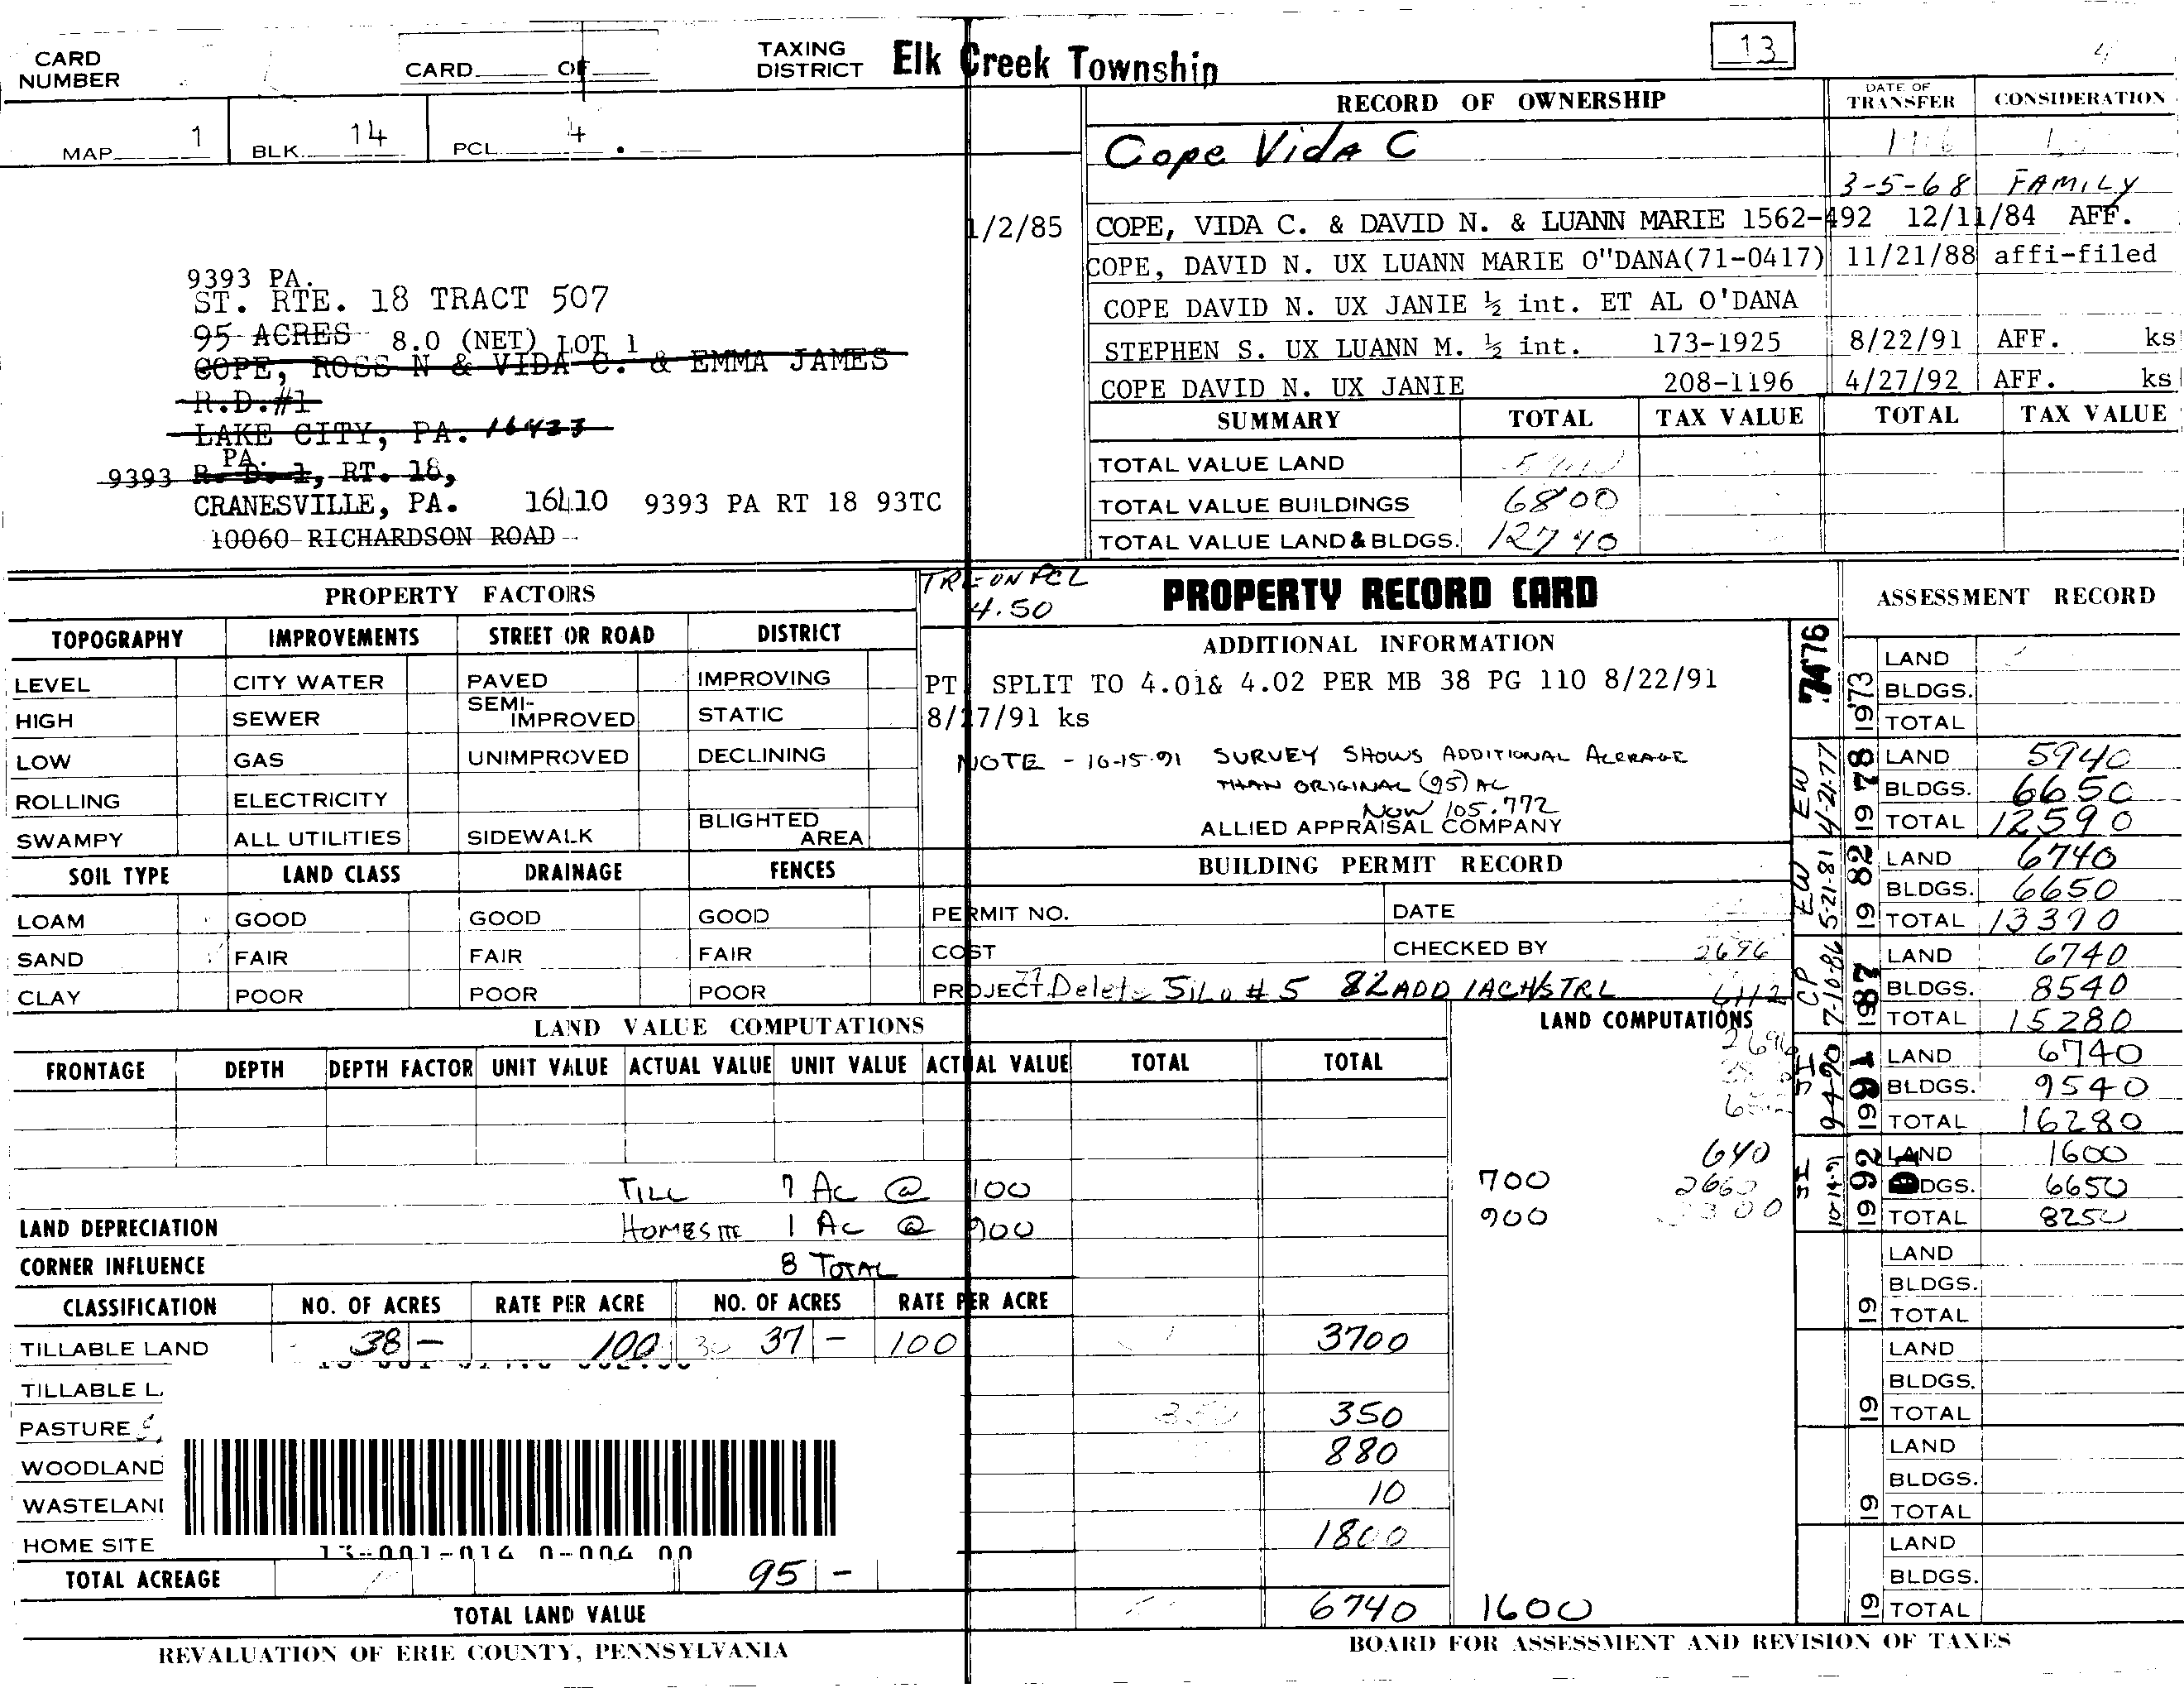 CARD NUMBER
CARD OF
TAXING DISTRICT Elk Creek Township
13
4
MAP 1 BLK. 14 PCL. 4 .
RECORD OF OWNERSHIP DATE OF TRANSFER CONSIDERATION
Cope Vida C
3-5-68 FAMILY
1/2/85 COPE, VIDA C. & DAVID N. & LUANN MARIE 1562-492 12/11/84 AFF.
COPE, DAVID N. UX LUANN MARIE O"DANA(71-0417) 11/21/88 affi-filed
COPE DAVID N. UX JANIE ½ int. ET AL O'DANA
STEPHEN S. UX LUANN M. ½ int. 173-1925 8/22/91 AFF. ks
COPE DAVID N. UX JANIE 208-1196 4/27/92 AFF. ks
9393 PA.
ST. RTE. 18 TRACT 507
95 ACRES 8.0 (NET) LOT 1
COPE, ROSS N & VIDA C. & EMMA JAMES
R.D.#1
LAKE CITY, PA. 16423
PA.
9393 R. D. 1, RT. 18,
CRANESVILLE, PA. 16410 9393 PA RT 18 93TC
10060 RICHARDSON ROAD
SUMMARY TOTAL TAX VALUE TOTAL TAX VALUE
TOTAL VALUE LAND
TOTAL VALUE BUILDINGS 6800
TOTAL VALUE LAND & BLDGS. 12740
PROPERTY FACTORS
TOPOGRAPHY IMPROVEMENTS STREET OR ROAD DISTRICT
LEVEL CITY WATER PAVED IMPROVING
HIGH SEWER SEMI-IMPROVED STATIC
LOW GAS UNIMPROVED DECLINING
ROLLING ELECTRICITY
SWAMPY ALL UTILITIES SIDEWALK BLIGHTED AREA
SOIL TYPE LAND CLASS DRAINAGE FENCES
LOAM GOOD GOOD GOOD
SAND FAIR FAIR FAIR
CLAY POOR POOR POOR
TRL ON PCL
4.50
PROPERTY RECORD CARD
ADDITIONAL INFORMATION
PT SPLIT TO 4.01& 4.02 PER MB 38 PG 110 8/22/91
8/27/91 ks
NOTE - 10-15-91 SURVEY SHOWS ADDITIONAL ACERAGE
THAN ORIGINAL (95) AC
NOW 105.772
ALLIED APPRAISAL COMPANY
BUILDING PERMIT RECORD
PERMIT NO. DATE
COST CHECKED BY 2696
PROJECT Delete Silo #5 82 ADD 1ACHSTRL
ASSESSMENT RECORD
7476
1973 LAND
BLDGS.
TOTAL
EW 4/21-77
1978 LAND 5940
BLDGS. 6650
TOTAL 12590
EW 5-21-81
1982 LAND 6740
BLDGS. 6650
TOTAL 13390
CP 7-10-86
1987 LAND 6740
BLDGS. 8540
TOTAL 15280
9-4-90
1991 LAND 6740
BLDGS. 9540
TOTAL 16280
10-14-91
1992 LAND 1600
BLDGS. 6650
TOTAL 8250
19 LAND
BLDGS.
TOTAL
19 LAND
BLDGS.
TOTAL
19 LAND
BLDGS.
TOTAL
19 LAND
BLDGS.
TOTAL
LAND VALUE COMPUTATIONS LAND COMPUTATIONS
FRONTAGE DEPTH DEPTH FACTOR UNIT VALUE ACTUAL VALUE UNIT VALUE ACTUAL VALUE TOTAL TOTAL
640
TILL 7 AC @ 100 700
LAND DEPRECIATION HOMESITE 1 AC @ 900 900
CORNER INFLUENCE 8 TOTAL
CLASSIFICATION NO. OF ACRES RATE PER ACRE NO. OF ACRES RATE PER ACRE
TILLABLE LAND 38 - 100 37 - 100 3700
TILLABLE L
PASTURE 350
WOODLAND 880
WASTELAN 10
HOME SITE 1800
13-001-014 0-004 00
TOTAL ACREAGE 95 -
TOTAL LAND VALUE 6740 1600
REVALUATION OF ERIE COUNTY, PENNSYLVANIA
BOARD FOR ASSESSMENT AND REVISION OF TAXES